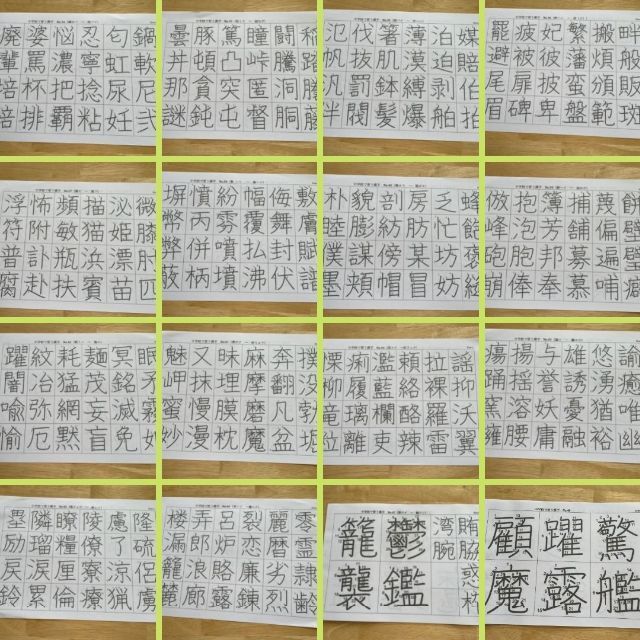 廃婆悩忍匂鍋
輩罵濃寧虹軟
培杯把捻尿尼
陪排覇粘妊弐
曇豚篤瞳闘稲
丼頓凸峠騰踏
那貪突匿洞謄
謎鈍屯督胴騰
氾伐箸薄泊媒
帆抜肌漠迫賠
汎罰鉢縛剥伯
半閥髪爆舶拍
罷疲妃繁搬畔
避被彼藩煩般
尾扉披蛮頒販
眉碑卑盤範斑
浮怖頻描泌微
符附敏猫姫膝
普訃瓶浜漂肘
腐赴扶賓苗匹
塀憤紛幅侮敷
幣丙雰覆舞膚
弊併噴払封賦
蔽柄墳沸伏譜
朴貌剖房乏蜂
睦膨紡肪忙飽
僕謀傍某坊褒
墨頬帽冒妨縫
倣抱簿捕蔑餅
峰泡芳舗偏壁
砲胞邦募遍璧
崩俸奉慕哺癖
躍紋耗麺冥眠
闇冶猛茂銘矛
喩弥網妄滅霧
愉厄黙盲免
魅又昧麻奔撲
岬抹埋摩翻没
蜜慢膜磨凡勃
妙漫枕魔盆堀
慄痢濫頼拉謡
柳履藍絡裸抑
竜璃欄酪羅沃
粒離吏辣雷翼
瘍揚与雄悠諭
踊揺誉誘湧癒
窯溶妖憂猶唯
擁腰庸融裕幽
塁隣瞭陵慮隆
励瑠糧僚了硫
戻涙厘寮涼侶
鈴累倫療猟虜
楼弄呂裂麗零
漏郎炉恋暦霊
籠廊賂廉劣隷
麓露錬烈齢
籠鬱湾賄
襲鑑腕脇
惑
枠
顧躍驚
魔露艦